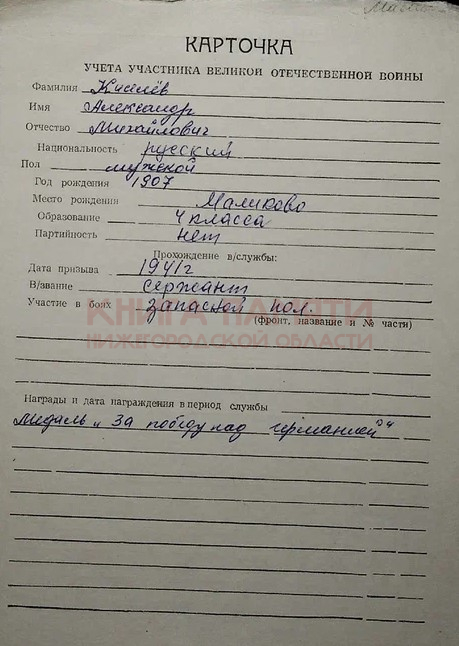 КАРТОЧКА
УЧЕТА УЧАСТНИКА ВЕЛИКОЙ ОТЕЧЕСТВЕННОЙ ВОЙНЫ
Фамилия Киselёв
Имя Александр
Отчество Михайлович
Национальность русский
Пол мужской
Год рождения 1907
Место рождения Маликово
Образование 4 класса
Партийность нет
Прохождение в/службы:
Дата призыва 1941г
В/звание сержант
Участие в боях запасной пол.
(фронт, название и № части)
КНИГА ПАМЯТИ
НИЖЕГОРОДСКОЙ ОБЛАСТИ
Награды и дата награждения в период службы
Медаль „За победу над Германией"